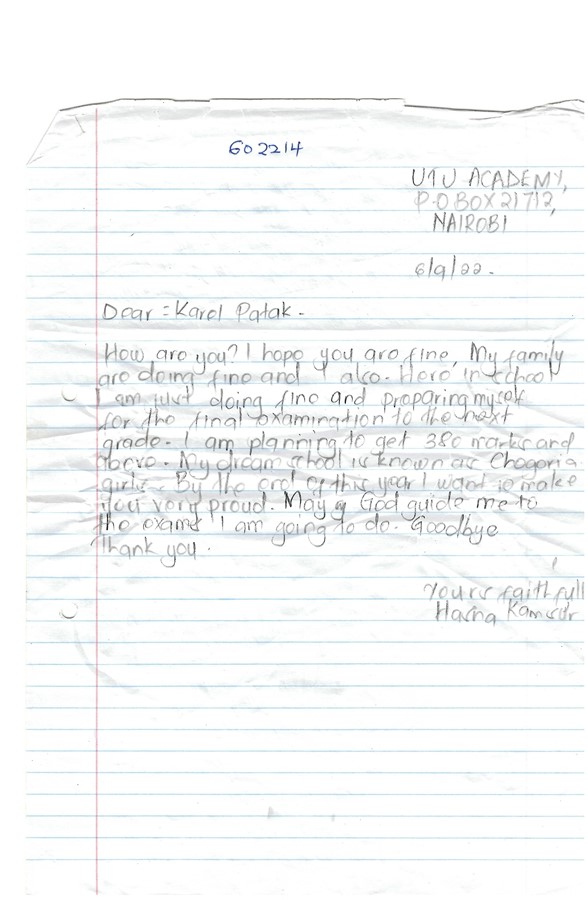 602214
UTU ACADEMY,
P.O BOX 21712,
NAIROBI
6/9/22.
Dear = Karel Patak.
How are you? I hope you are fine, My family
are doing fine and I also. Here in school
I am just doing fine and preparing myself
for the final examination to the next
grade. I am planning to get 380 marks and
above. My dream school is known as Chogoria
girls. By the end of this year I want to make
you very proud. May God guide me to
the exams I am going to do. Goodbye
thank you.
Yours faithfull
Hasna